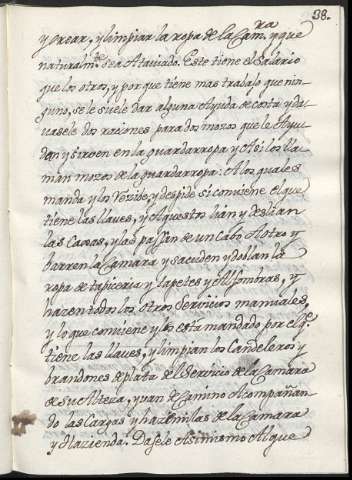 38.
y orear, y limpiar la ropa de la Camra. y que
naturalmte. sea Ataviado. Este tiene el Salario
que los otros, y por que tiene mas trabajo que nin-
guno, se le suele dar alguna Ayuda de costa y da-
vasele dos raziones para dos mozos que le Ayu-
den y sirven en la guardarropa y Asi los lla-
man mozos de la guardarropa: A los quales
manda y los riñe y despide si conviene el que
tiene las llaves, y Aquestos lian y deslian
las Camas, y las passan de un Cabo A otro y
barren la Camara y sacuden y doblan la
ropa de tapizeria y tapetes y Alfombras, y
hazen todos los otros Servicios manuales,
y lo que conviene y les esta mandado por el q.e
tiene las llaves, y limpian los Candeleros y
brandones de plata del Servicio de la Camara
de su Alteza, y van de Camino Acompañan-
do las Cargas y hazemilas de la Camara
y Hazienda. Dasele Asimismo Al que